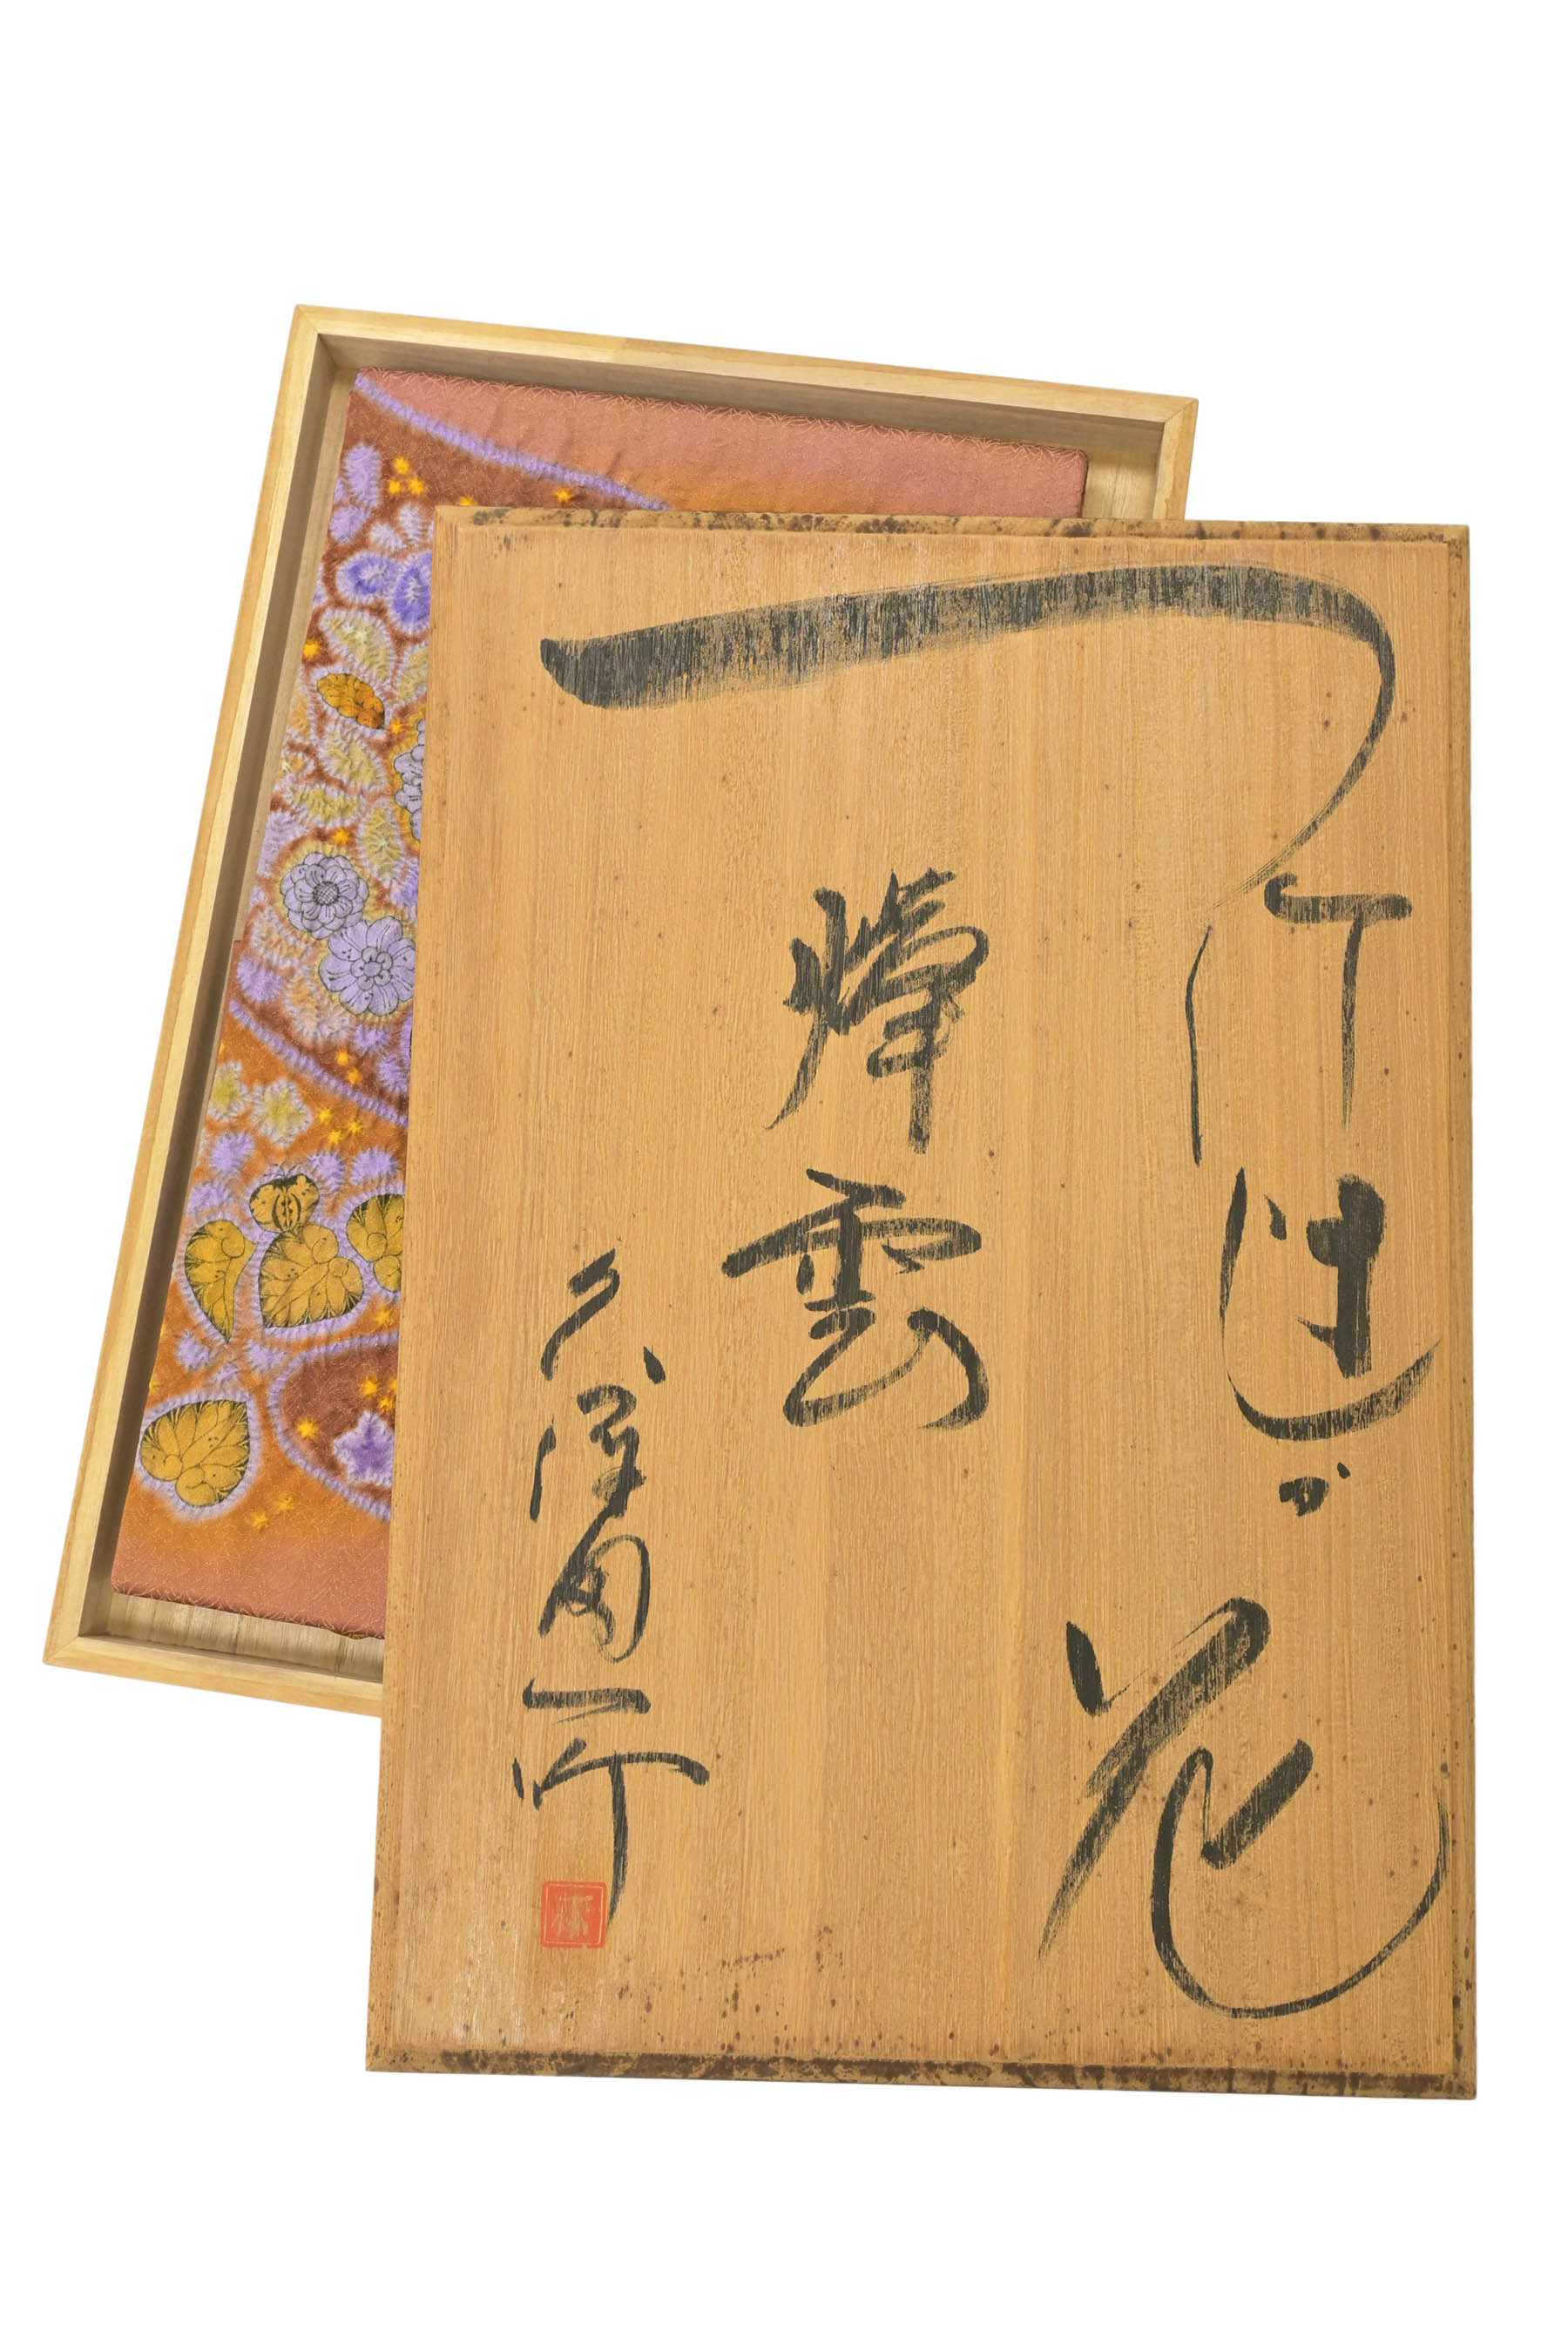 一竹辻が花
雲
久保田一竹